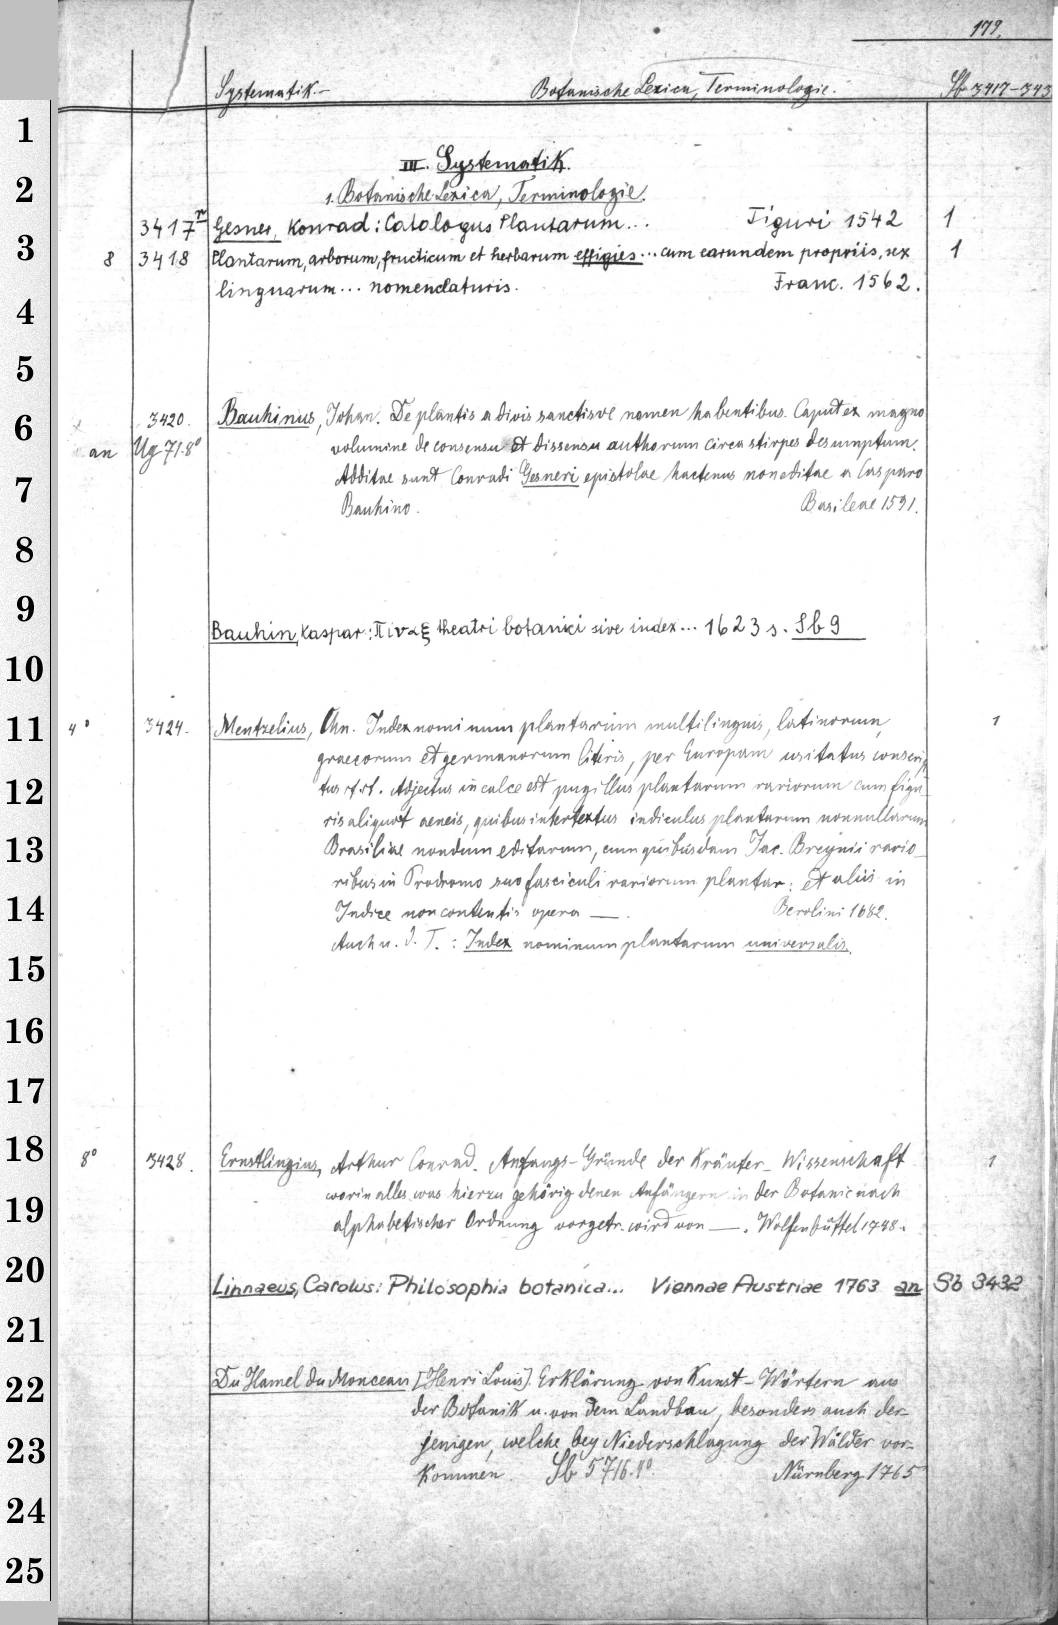 179.
Systematik.- Botanische Lexica, Terminologie. Sb 3417-343
1
III. Systematik.
2
1. Botanische Lexica, Terminologie.
3417 n Gesner, Konrad: Catalogus Plantarum... Tiguri 1542 1
3
8 3418 Plantarum, arborum, fructicum et herbarum effigies... cum earundem propriis, sex 1
linguarum... nomenclaturis. Franc. 1562.
4
5
3420. Bauhinus, Johan. De plantis a divis sanctisve nomen habentibus. Caput ex magno
6
an Ug 71.8° volumine de consensu et dissensu authorum circa stirpes desumptum.
Additae sunt Conradi Gesneri epistolae hactenus non editae a Casparo
7
Bauhino. Basileae 1591.
8
9
Bauhin, Kaspar: Πίναξ theatri botanici sive index... 1623 s. Sb 9
10
11
4° 3424. Mentzelius, Chn. Index nominum plantarum multilinguis, latinorum, 1
graecorum et germanorum literis, per Europam usitatus conscrip
12
tus rf.rf. Adjectus in calce est pugillus plantarum rariorum cum figu-
ris aliquot aeneis, quibus intertextus indiculus plantarum nonnullarum
13
Brasiliae nondum editarum, cum quibusdam Jac. Breynii rario-
ribus in Prodromo suo fasciculi rariorum plantar: et aliis in
14
Indice non contentis opera —. Berolini 1682.
Auch u. d. T.: Index nominum plantarum universalis.
15
16
17
18
8° 3428. Ernstlingius, Arthur Conrad. Anfangs-Gründe der Kräuter-Wissenschaft 1
worin alles, was hierzu gehörig denen Anfängern in der Botanic nach
19
alphabetischer Ordnung vorgetr. wird von —. Wolfenbüttel 1748.
20
Linnaeus, Carolus: Philosophia botanica... Viennae Austriae 1763 an Sb 3432
21
22
Du Hamel du Monceau [Henri Louis]. Erklärung von Kunst-Wörtern aus
der Botanik u. von dem Landbau, besonders auch der-
23
jenigen, welche bey Niederschlagung der Wälder vor-
kommen. Sb 5716.4°. Nürnberg 1765
24
25